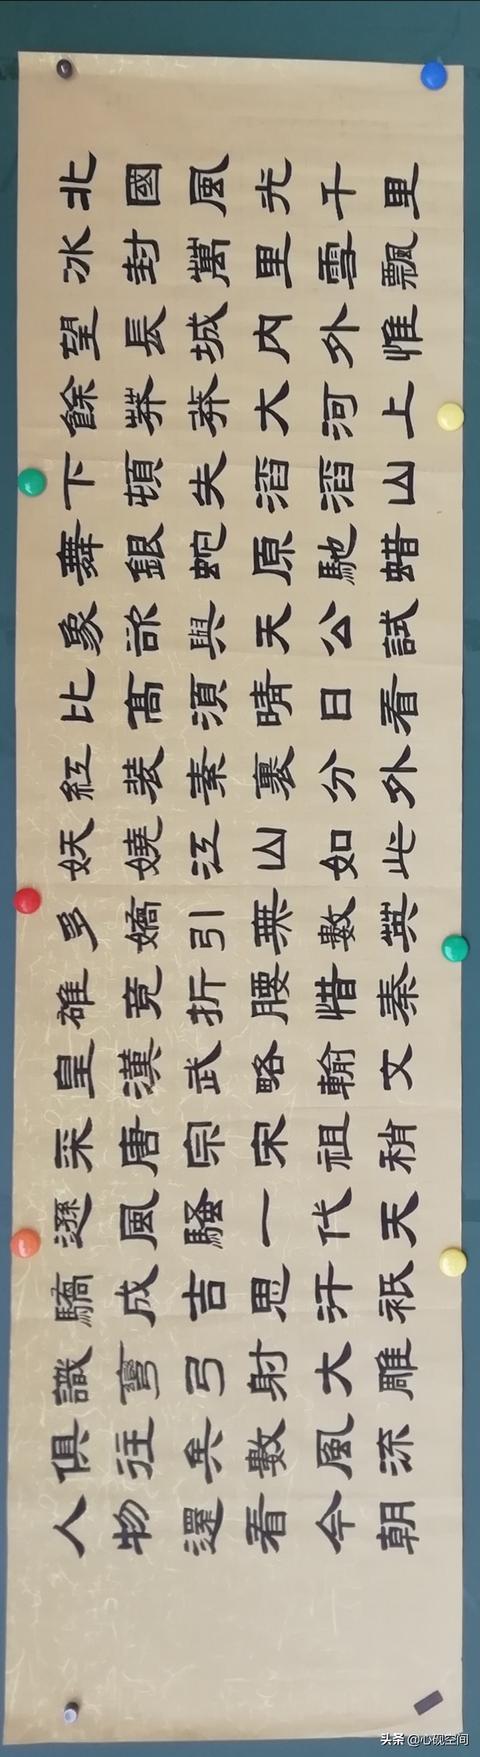 北國風光千里
冰封萬里雪飄
望長城内外惟
餘莽莽大河上
下頓失滔滔山
舞銀蛇原馳蜡
象欲與天公試
比高須晴日看
紅装素裹分外
妖嬈江山如此
多嬌引無數英
雄竞折腰惜秦
皇漢武略輸文
采唐宗宋祖稍
遜風騷一代天
驕成吉思汗祇
識彎弓射大雕
俱往矣數風流
人物還看今朝
头条 @心砚空间